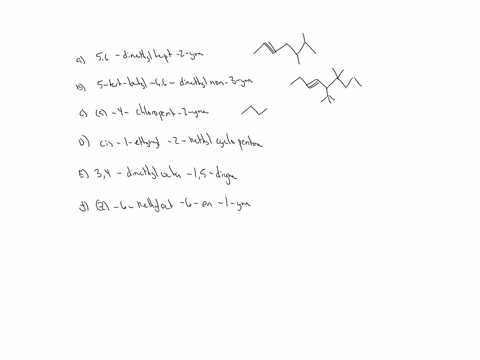 a) 5,6 - dimethyl hept - 2 - yne
b) 5 - tert - butyl - 6,6 - dimethyl non - 3 - yne
c) (s) - 4 - chloropent - 2 - yne
D) cis - 1 - ethynyl - 2 - methyl cyclopentane
E) 3,4 - dimethyl octa - 1,5 - diyne
f) (Z) - 6 - methyl oct - 6 - en - 1 - yne